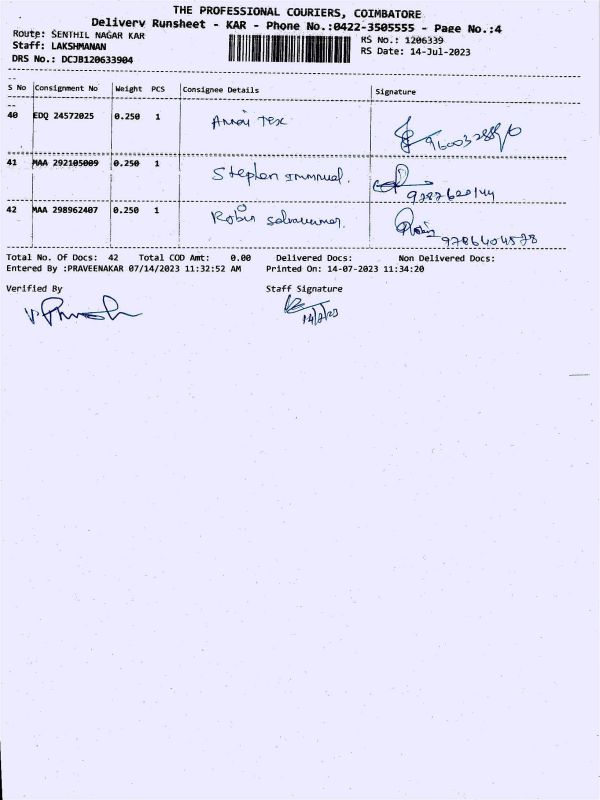 THE PROFESSIONAL COURIERS, COIMBATORE
Delivery Runsheet - KAR - Phone No.:0422-3505555 - Page No.:4
Route: SENTHIL NAGAR KAR
RS No.: 1206339
Staff: LAKSHMANAN
RS Date: 14-Jul-2023
DRS No.: DCJB120633904
S No Consignment No Weight PCS Consignee Details Signature
40 EDQ 24572025 0.250 1 Annai Tex
41 MAA 292105009 0.250 1 Stephen Immnual.
9787620144
42 MAA 298962407 0.250 1 Robin Selvakumar.
Robin 9786404578
Total No. Of Docs: 42 Total COD Amt: 0.00 Delivered Docs: Non Delivered Docs:
Entered By :PRAVEENAKAR 07/14/2023 11:32:52 AM Printed On: 14-07-2023 11:34:20
Verified By Staff Signature